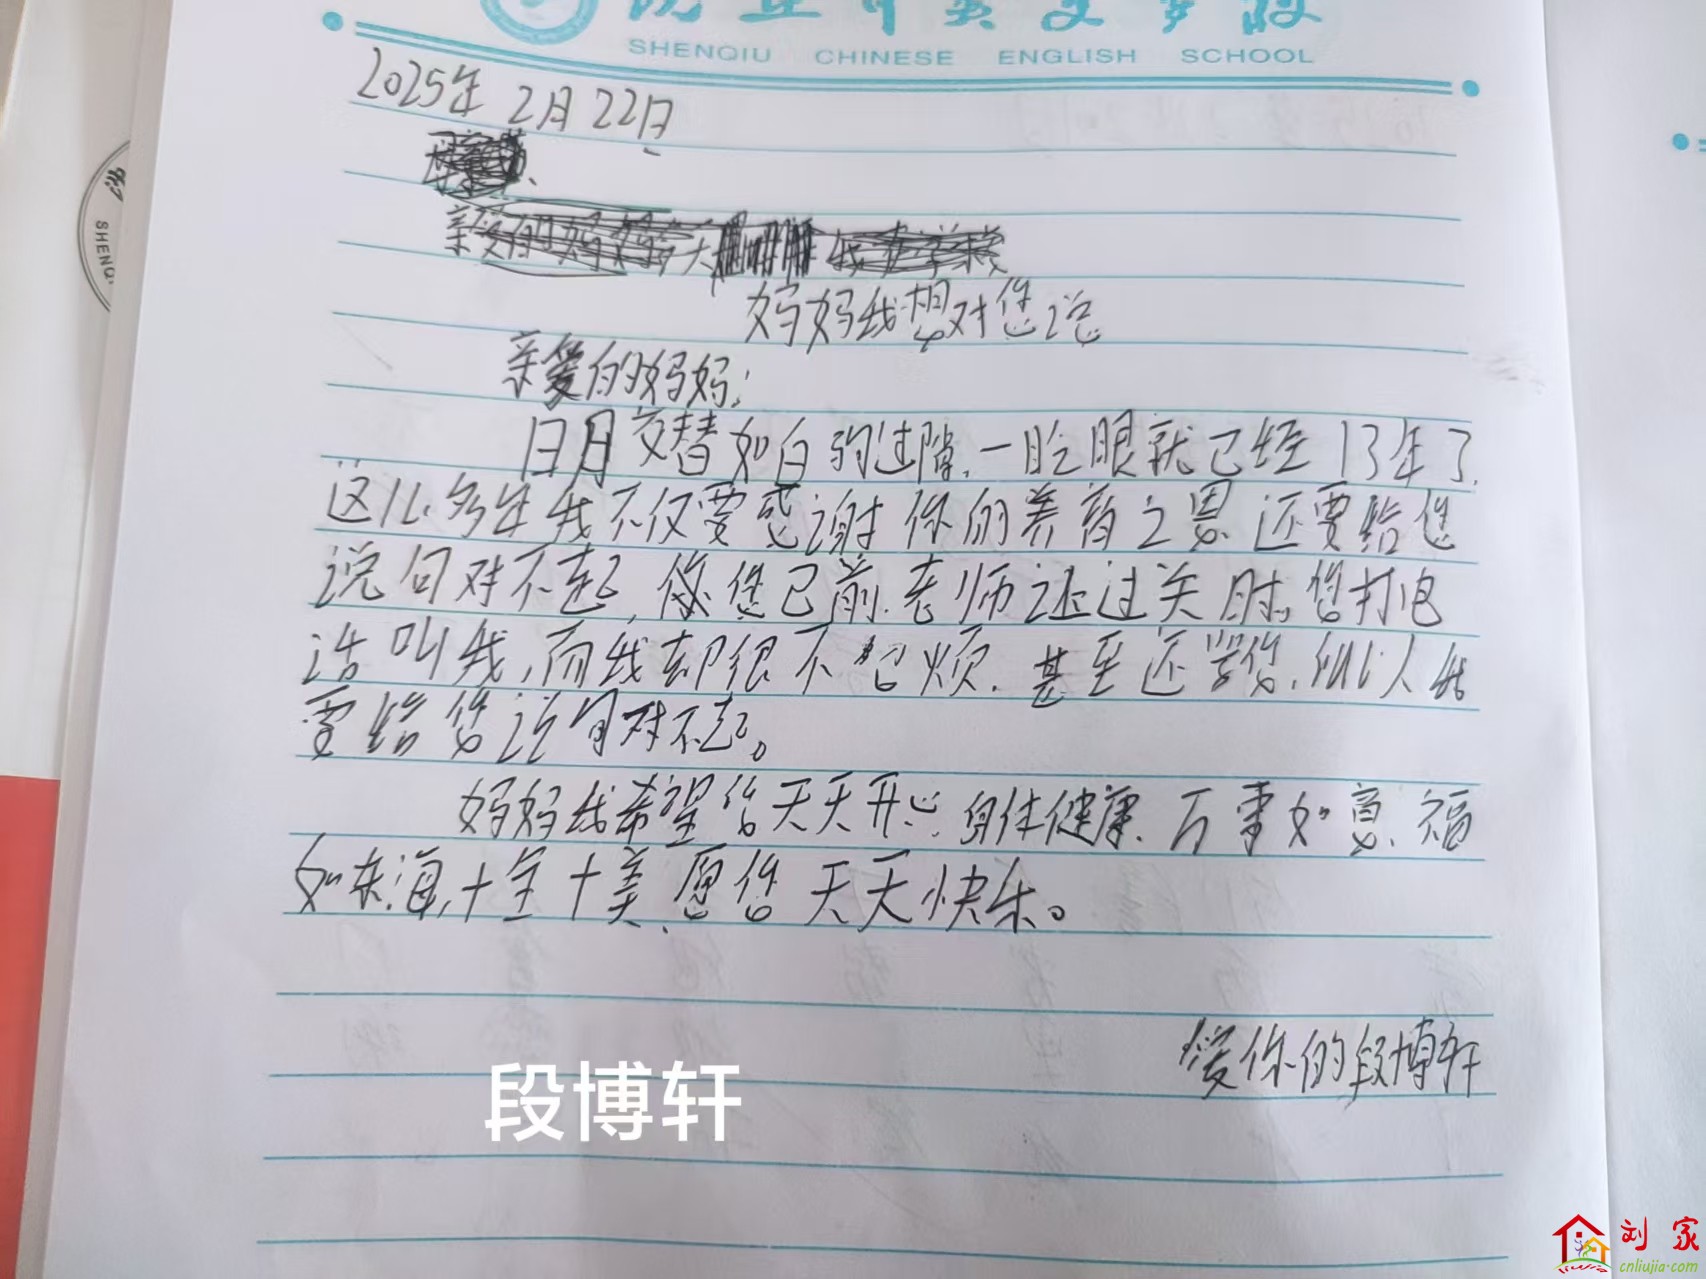 SHENQIU CHINESE ENGLISH SCHOOL
2025年 2月 22日
妈妈我想对您说
亲爱的妈妈:
日月交替如白驹过隙,一眨眼就已经13年了,
这么多年我不仅要感谢你的养育之恩还要给您
说句对不起,您已前老师还过关时。您打电
话叫我,而我却很不包烦.甚至还骂您,所以人我
要给您说句对不起。
妈妈我希望您天天开心 身体健康.万事如意、福
如东海,十全十美、愿您天天快乐。
爱你的段博轩
段博轩
SHENQ
刘家
cnliujia.com